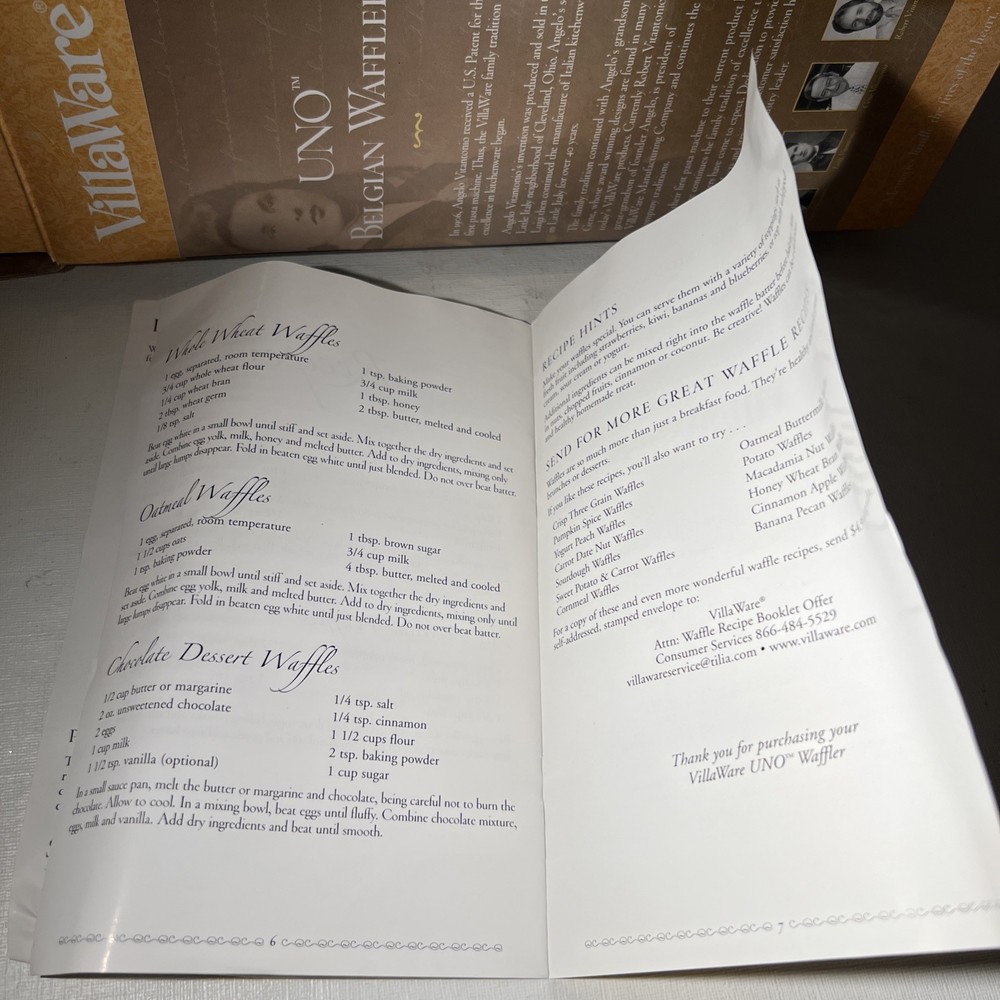 VillaWare®
UNO™
BELGIAN WAFFLER
In 1906, Angelo Vitantonio received a U.S. Patent for the
first pasta machine. Thus, the VillaWare family tradition
excellence in kitchenware began.
Angelo Vitantonio's invention was produced and sold in
Little Italy neighborhood of Cleveland, Ohio. Angelo's
then continued the manufacture of Italian kitchenware
in Little Italy for over 40 years.
The family tradition continued with Angelo's grandson
whose award winning designs are found in many
VillaWare products. Currently, Robert Vitantonio,
great-grandson of founder Angelo, is president of
VillaWare Manufacturing Company and continues the
company traditions.
their first pasta machine to their current product
continues the family tradition of excellence
have come to expect.
Whole Wheat Waffles
1 egg, separated, room temperature
3/4 cup whole wheat flour
1/4 cup wheat bran
2 tbsp. wheat germ
1/8 tsp. salt
1 tsp. baking powder
3/4 cup milk
1 tbsp. honey
2 tbsp. butter, melted and cooled
Beat egg white in a small bowl until stiff and set aside. Mix together the dry ingredients and set
aside. Combine egg yolk, milk, honey and melted butter. Add to dry ingredients, mixing only
until large lumps disappear. Fold in beaten egg white until just blended. Do not over beat batter.
Oatmeal Waffles
1 egg, separated, room temperature
1 1/2 cups oats
1 tsp. baking powder
1 tbsp. brown sugar
3/4 cup milk
4 tbsp. butter, melted and cooled
Beat egg white in a small bowl until stiff and set aside. Mix together the dry ingredients and
set aside. Combine egg yolk, milk and melted butter. Add to dry ingredients, mixing only until
large lumps disappear. Fold in beaten egg white until just blended. Do not over beat batter.
Chocolate Dessert Waffles
1/2 cup butter or margarine
2 oz. unsweetened chocolate
2 eggs
1 cup milk
1 1/2 tsp. vanilla (optional)
1/4 tsp. salt
1/4 tsp. cinnamon
1 1/2 cups flour
2 tsp. baking powder
1 cup sugar
In a small sauce pan, melt the butter or margarine and chocolate, being careful not to burn the
chocolate. Allow to cool. In a mixing bowl, beat eggs until fluffy. Combine chocolate mixture,
eggs, milk and vanilla. Add dry ingredients and beat until smooth.
6
RECIPE HINTS
Make your waffles special. You can serve them with a variety of
fresh fruit including strawberries, kiwi, bananas and blueberries, or top with
cream, sour cream or yogurt.
Additional ingredients can be mixed right into the waffle batter before
in nuts, chopped fruits, cinnamon or coconut. Be creative! Waffles can
and healthy homemade treat.
SEND FOR MORE GREAT WAFFLE RECIPES
Waffles are so much more than just a breakfast food. They're healthy
brunches or desserts.
If you like these recipes, you'll also want to try . . .
Crisp Three Grain Waffles
Pumpkin Spice Waffles
Yogurt Peach Waffles
Carrot Date Nut Waffles
Sourdough Waffles
Sweet Potato & Carrot Waffles
Cornmeal Waffles
Oatmeal Buttermilk
Potato Waffles
Macadamia Nut
Honey Wheat Bran
Cinnamon Apple
Banana Pecan Waffles
For a copy of these and even more wonderful waffle recipes, send
self-addressed, stamped envelope to:
VillaWare®
Attn: Waffle Recipe Booklet Offer
Consumer Services 866-484-5529
villawareservice@rilia.com • www.villaware.com
Thank you for purchasing your
VillaWare UNO™ Waffler
7